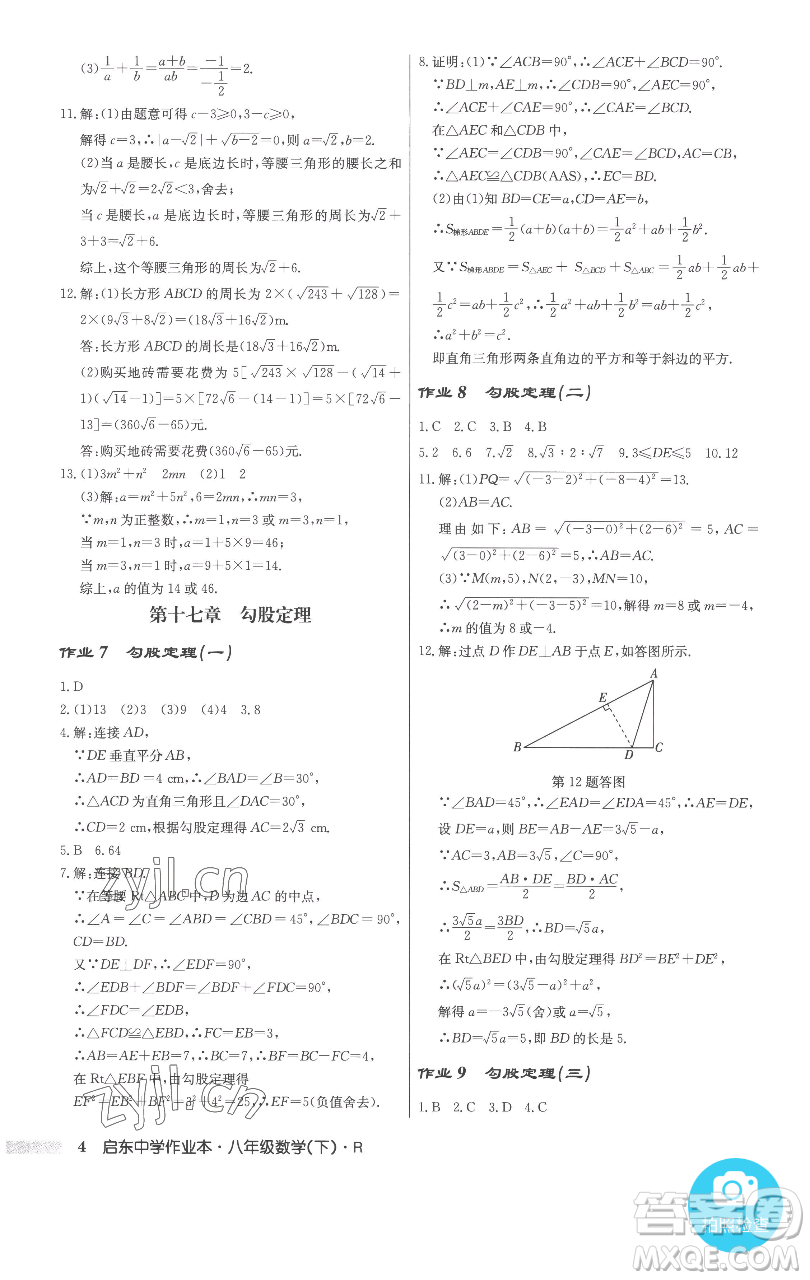 (3)1/a+1/b=(a+b)/(ab)=(-1)/(-1/2)=2.
11.解:(1)由题意可得 c-3≥0,3-c≥0,
解得 c=3,∴|a-√2|+√(b-2)=0,则 a=√2,b=2.
(2)当 a 是腰长,c 是底边长时,等腰三角形的腰长之和
为√2+√2=2√2<3,舍去;
当 c 是腰长,a 是底边长时,等腰三角形的周长为√2+
3+3=√2+6.
综上,这个等腰三角形的周长为√2+6.
12.解:(1)长方形 ABCD 的周长为 2×(√243+√128)=
2×(9√3+8√2)=(18√3+16√2)m.
答:长方形 ABCD 的周长是(18√3+16√2)m.
(2)购买地砖需要花费为 5[√243×√128-(√14+
1)(√14-1)]=5×[72√6-(14-1)]=5×[72√6-
13]=(360√6-65)元.
答:购买地砖需要花费(360√6-65)元.
13.(1)3m²+n² 2mn (2)1 2
(3)解:a=m²+5n²,6=2mn,∴mn=3,
∵m,n 为正整数,∴mn=3,
当 m=1,n=3 时,a=1+5×9=46;
当 m=3,n=1 时,a=9+5×1=14.
综上,a 的值为 14 或 46.
第十七章 勾股定理
作业 7 勾股定理(一)
1.D
2.(1)13 (2)3 (3)9 (4)4 3.8
4.解:连接 AD,
∵DE 垂直平分 AB,
∴AD=BD=4 cm,∴∠BAD=∠B=30°,
∴△ACD 为直角三角形且∠DAC=30°,
∴CD=2 cm,根据勾股定理得 AC=2√3 cm.
5.B 6.64
7.解:连接 BD.
∵在等腰 Rt△ABC 中,D 为边 AC 的中点,
∴∠A=∠C=∠ABD=∠CBD=45°,∠BDC=90°,
CD=BD.
又∵DE⊥DF,∴∠EDF=90°,
∴∠EDB+∠BDF=90°,
∴∠FDC+∠BDF=90°,
∴∠FDC=∠EDB,
∴△FCD≌△EBD,∴EB=FC=3,
∴AB=AE+BE=4+3=7=BC,∴BF=4,
在 Rt△EBF 中,由勾股定理得
EF²=EB²+BF²=3²+4²=25,∴EF=5(负值舍去).
8.证明:(1)∵∠ACB=90°,∴∠ACE+∠BCD=90°.
∵BD⊥m,AE⊥m,∴∠CDB=90°,∠AEC=90°,
∴∠ACE+∠CAE=90°,∴∠CAE=∠BCD.
在△AEC 和△CDB 中,
∵∠AEC=∠CDB=90°,∠CAE=∠BCD,AC=CB,
∴△AEC≌△CDB(AAS),∴EC=BD.
(2)由(1)知 BD=CE=a,CD=AE=b,
∴S梯形ABDE=1/2(a+b)(a+b)=1/2a²+ab+1/2b².
又∵S梯形ABDE=S△AEC+S△BCD+S△ABC=1/2ab+1/2ab+
1/2c²=ab+1/2c²,∴1/2a²+ab+1/2b²=ab+1/2c²,
∴a²+b²=c².
即直角三角形两条直角边的平方和等于斜边的平方.
作业 8 勾股定理(二)
1.C 2.C 3.B 4.B
5.2 6.6 7.√2 8.√3∶2∶√7 9.3≤DE≤5 10.12
11.解:(1)PQ=√((-3-2)²+(-8-4)²)=13.
(2)AB=AC.
理由如下:AB=√((-3-0)²+(2-6)²)=5,AC=
√((3-0)²+(2-6)²)=5,∴AB=AC.
(3)∵M(m,5),N(2,-3),MN=10,
∴√((2-m)²+(-3-5)²)=10,解得 m=8 或 m=-4,
∴m 的值为 8 或-4.
12.解:过点 D 作 DE⊥AB 于点 E,如答图所示.
A
E
B D C
第 12 题答图
∵∠BAD=45°,∴∠EAD=∠EDA=45°,∴AE=DE,
设 DE=a,则 AE=a,BE=AB-AE=3√5-a,
∵AC=3,AB=3√5,∠C=90°,
∴S△ABD=(AB·DE)/2=(BD·AC)/2,
∴(3√5a)/2=(3BD)/2,∴BD=√5a,
在 Rt△BED 中,由勾股定理得 BD²=BE²+DE²,
∴(√5a)²=(3√5-a)²+a²,
解得 a=-3√5(舍)或 a=√5,
∴BD=√5a=5,即 BD 的长是 5.
作业 9 勾股定理(三)
1.B 2.C 3.D 4.C
4 启东中学作业本·八年级数学(下)·R
zyjl.cn
zyjl.cn
拍照检查
答案卷
MXQE.COM